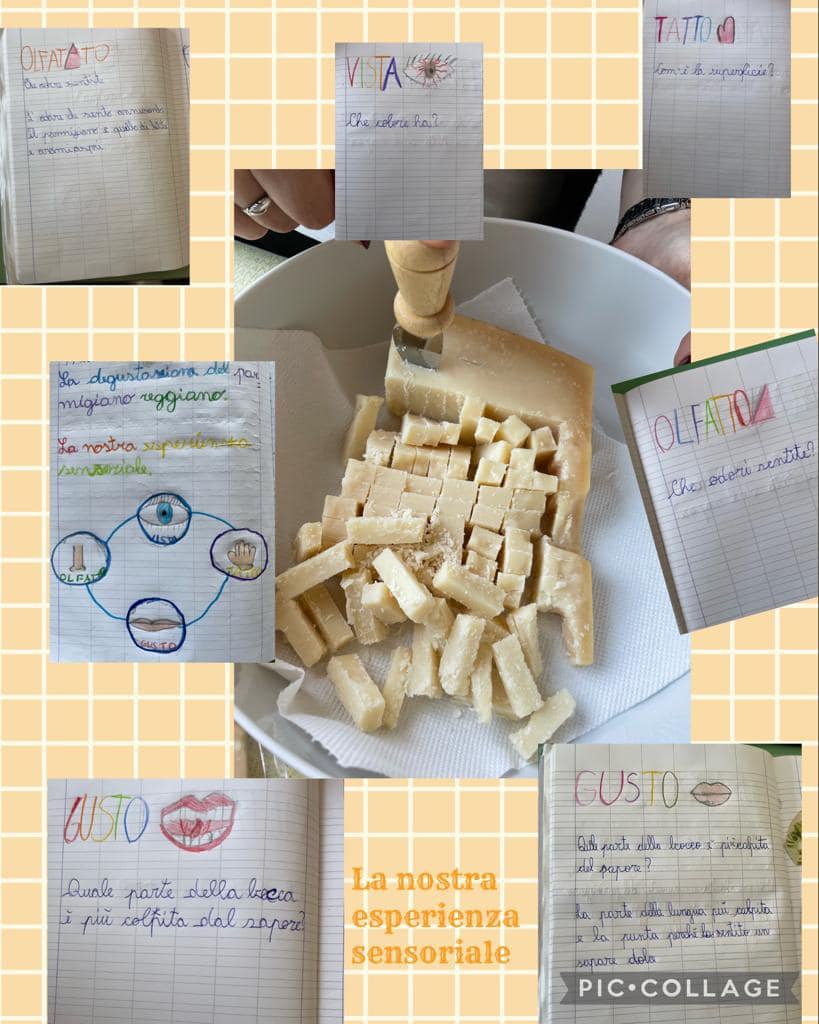 OLFATATO
Che odore sentite
L'odore che sento annusando
il parmigiano è quello di latte
e
VISTA
Che colore ha?
TATTO
Com'è la superficie?
La degustazione del par
migiano reggiano.
La nostra esperienza
sensoriale.
VISTA
OLFATTO
TATTO
GUSTO
OLFATTO
Che odori sentite?
GUSTO
Quale parte della bocca
è più colpita dal sapore?
La nostra
esperienza
sensoriale
GUSTO
Quale parte della bocca è più colpita
del sapore?
La parte della lingua più colpita
e la punta perché ho sentito un
sapore dolce
PIC•COLLAGE